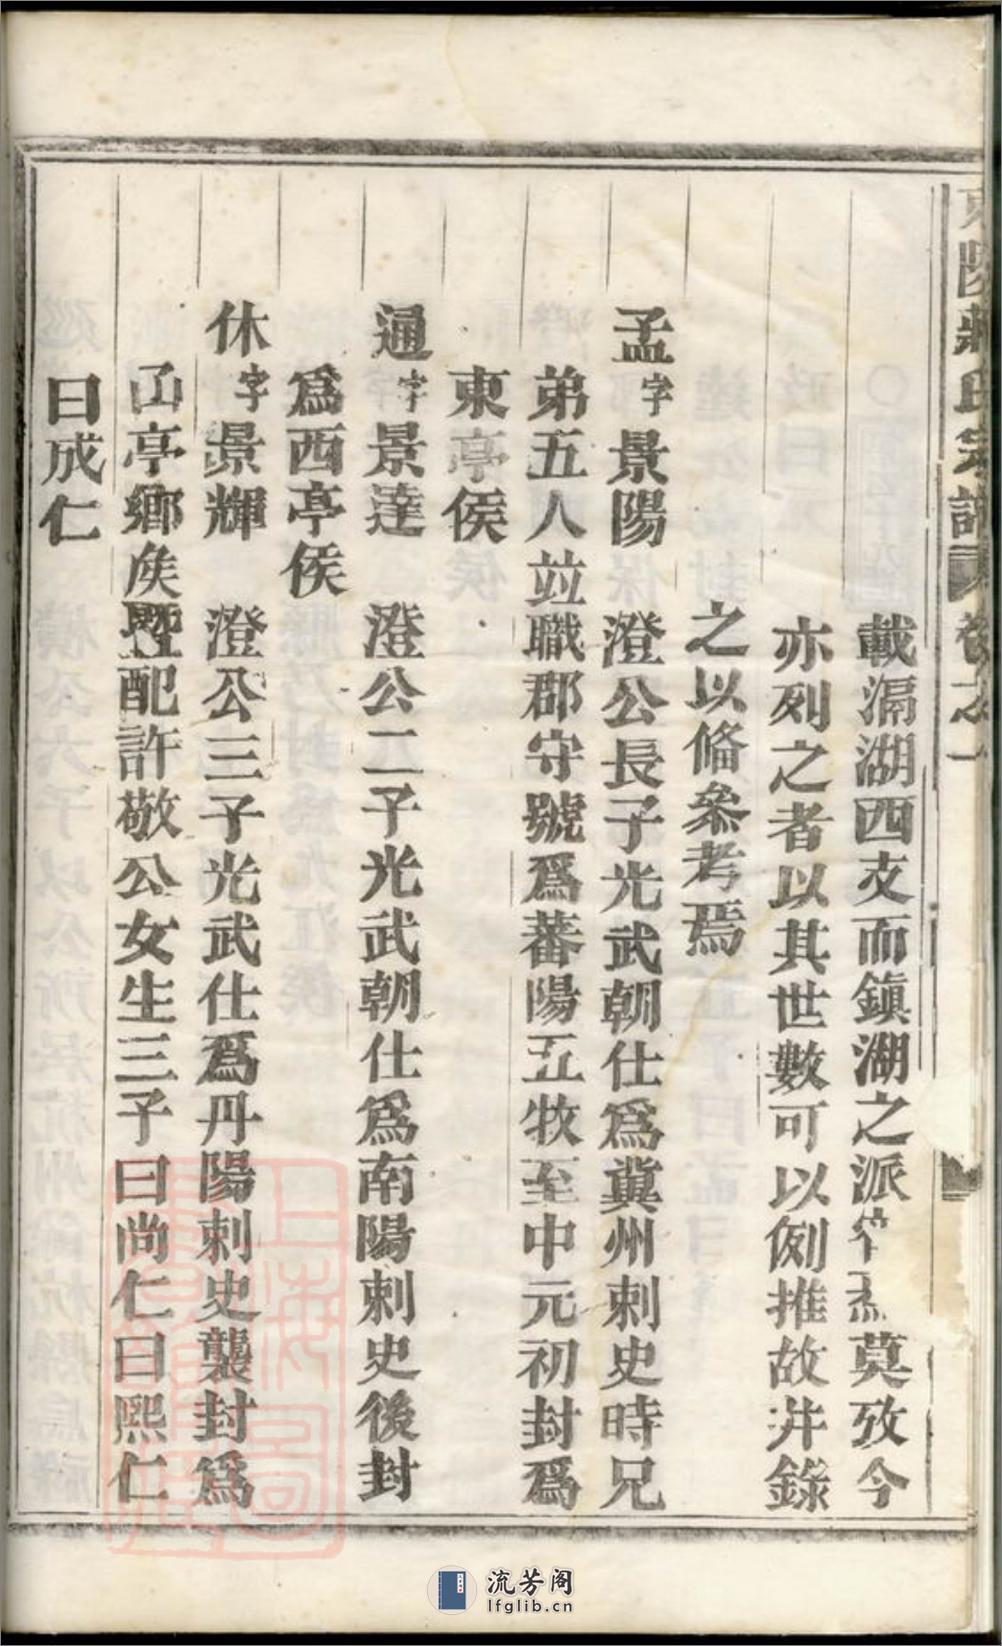 東陽蔣氏宗譜 卷之一
載滆湖西支而鎮湖之派 莫攷今
亦列之者以其世數可以例推故并錄
之以俻叅考焉
孟字景陽 澄公長子光武朝仕爲兾州刺史時兄
弟五人竝職郡守號爲蕃陽五牧至中元初封爲
東亭侯
通字景達 澄公二子光武朝仕爲南陽刺史後封
爲西亭侯
休字景輝 澄公三子光武仕爲丹陽刺史襲封爲
亭鄉矦 配許敬公女生三子曰尚仁曰熙仁
曰成仁
流芳阁
lfglib.cn